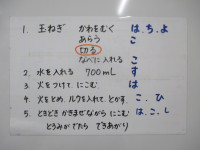 1. 玉ねぎ かわをむく は、ち、よ
あらう こ
切る
なべに入れる こ
2. 水を入れる 700mL す
3. 火をつけて、にこむ は
4. 火をとめ、ルウを入れて、とかす こ、ひ
5. ときどき かきまぜながら にこむ は、こ、し
とろみがでたら できあがり